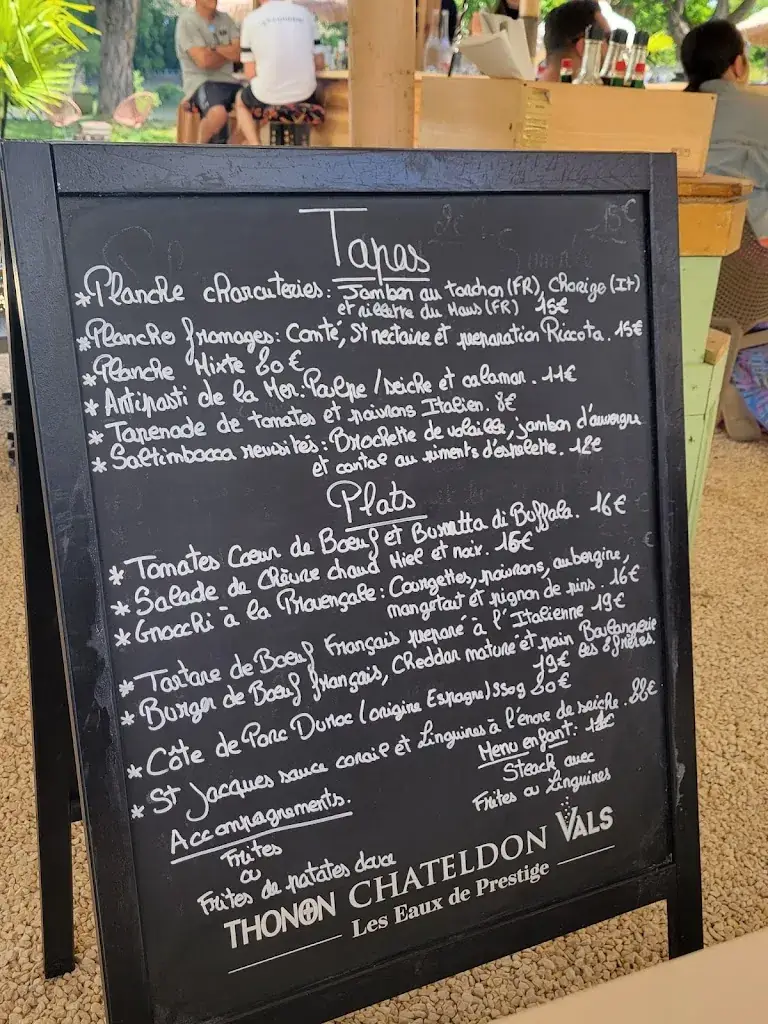 Tapas
*Planche charcuteries: Jambon au torchon (FR), Chorizo (It)
et rillette du Mans (FR) 15€
*Planche fromages: Comté, St nectaire et preparation Riccota. 15€
*Planche Mixte 20€
*Antipasti de la Mer: Poulpe / seiche et calamar. 11€
*Tapenade de tomates et poivrons Italien. 8€
*Saltimbocca revisités: Brochette de volaille, jambon d'auvergne
et cantal au piments d'espelette. 12€
Plats
*Tomates Coeur de Boeuf et Burratta di Buffala. 16€
*Salade de Chèvre chaud Miel et noix. 15€
*Gnocchi à la Provençale: Courgettes, poivrons, aubergine,
mangetait et pignon de pins. 16€
*Tartare de Boeuf Français preparé à l'Italienne 19€
*Burger de Boeuf français, Cheddar mature et pain Boulangerie
19€ les 8 frères.
*Côte de Porc Duroc (origine Espagne) 350g 20€
*St Jacques sauce corail et Linguines à l'encre de seiche. 22€
Accompagnements.
Frites
ou
Frites de patates douce
Menu enfant: 12€
Steack avec
Frites ou Linguines
THONON CHATELDON VALS
Les Eaux de Prestige